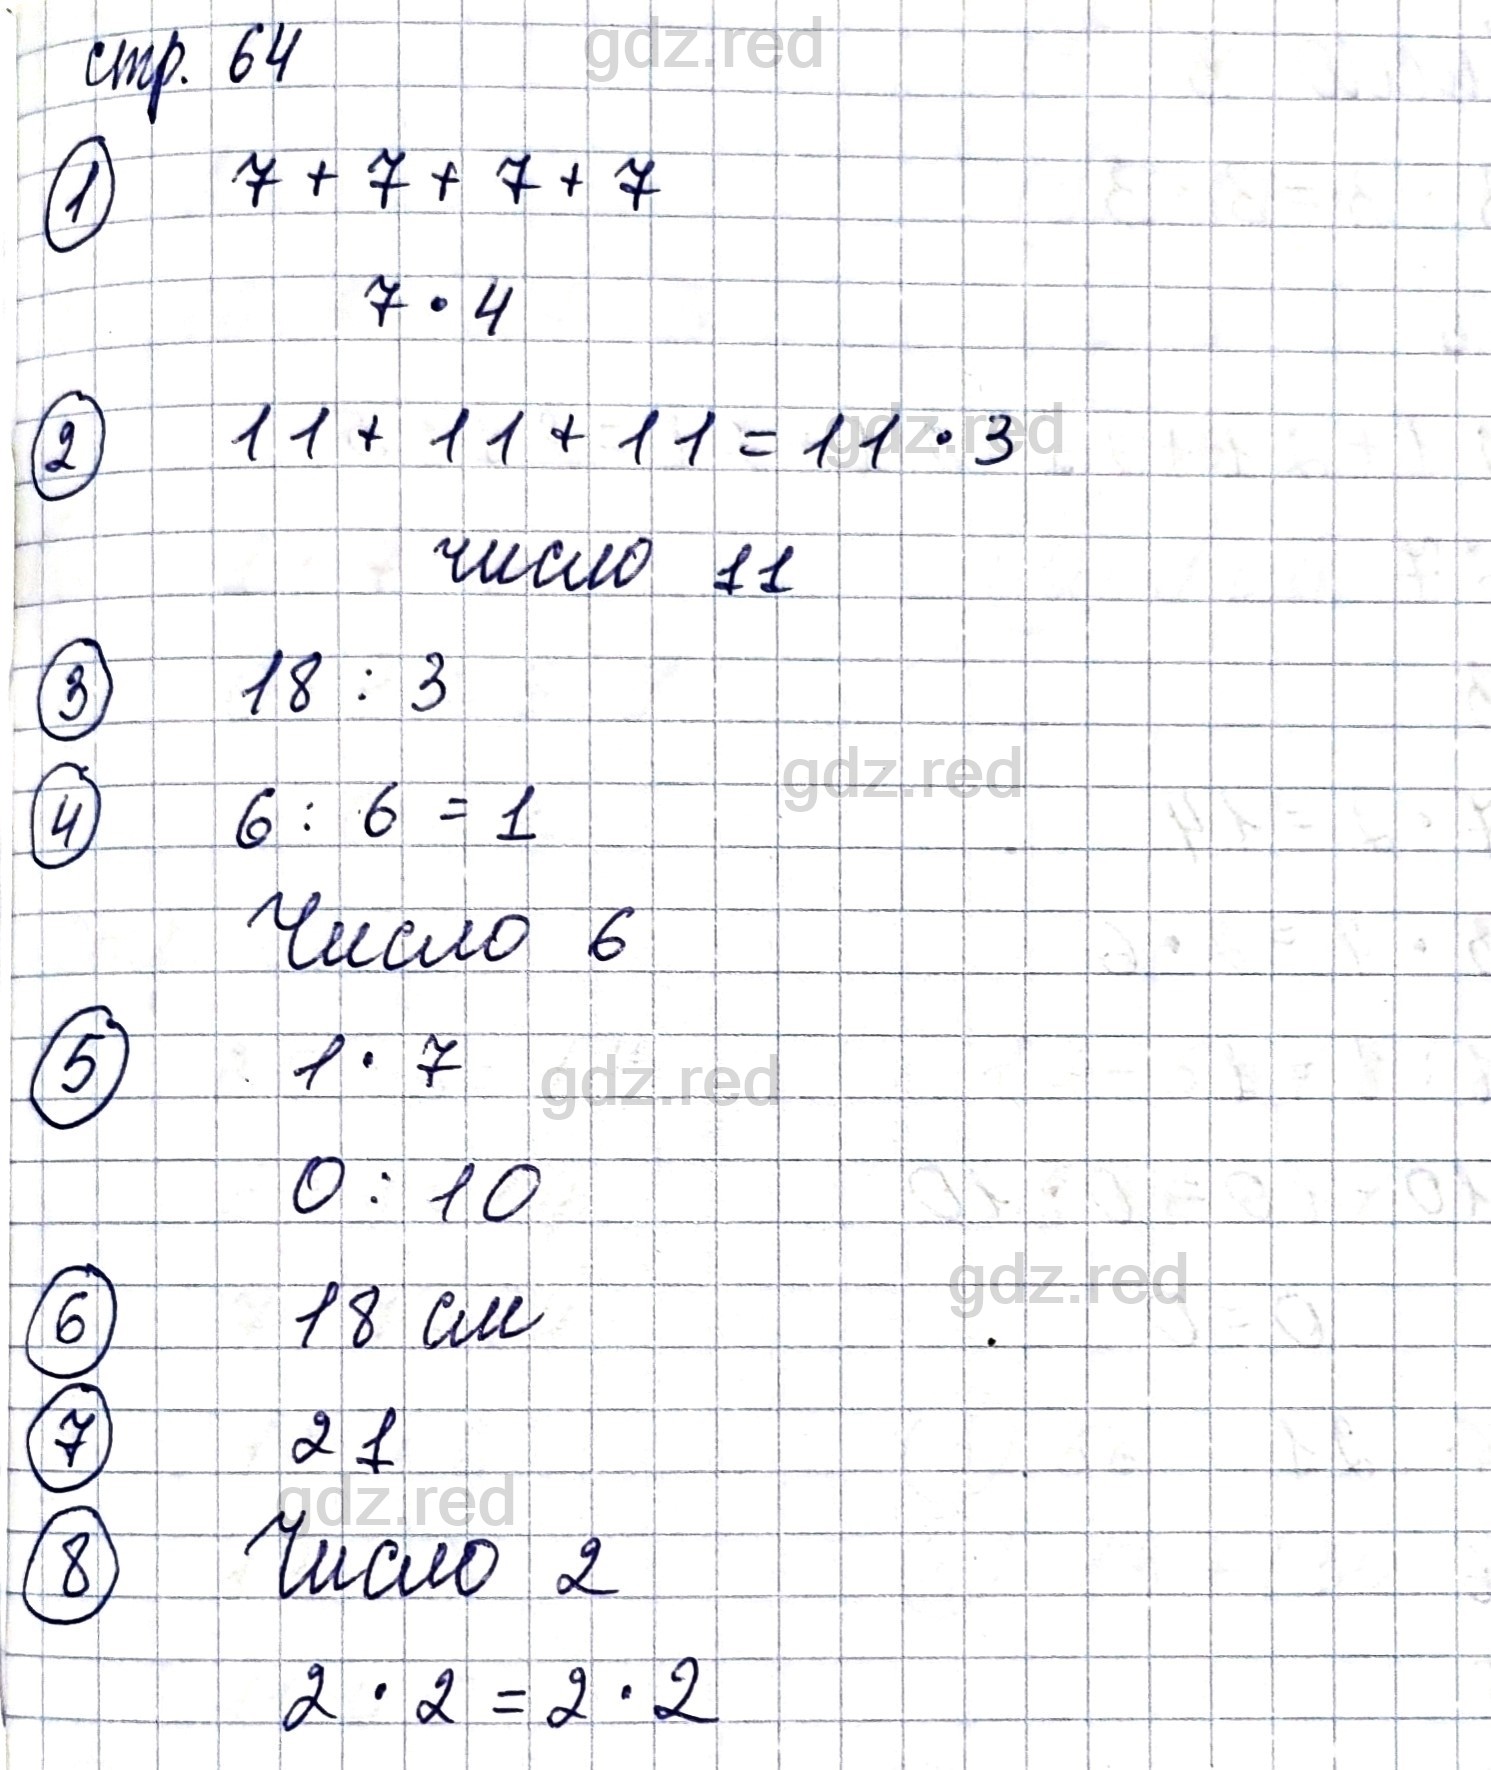 стр. 64
1 7 + 7 + 7 + 7
7 · 4
2 11 + 11 + 11 = 11 · 3
число 11
3 18 : 3
4 6 : 6 = 1
Число 6
5 1 · 7
0 : 10
6 18 см
7 21
8 Число 2
2 · 2 = 2 · 2
gdz.red
gdz.red
gdz.red
gdz.red
gdz.red
gdz.red